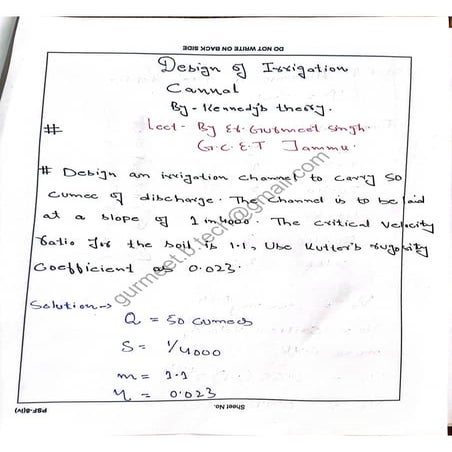 DO NOT WRITE ON BACK SIDE
Design of Irrigation
Cannal
By - Kennedy's theory.
# Lect - By Er. Gurmeet Singh.
G.C.E.T Jammu.
# Design an irrigation channel to carry 50
cumec of discharge. The channel is to be laid
at a slope of 1 in 4000. The critical velocity
ratio for the soil is 1.1, Use Kutter's rugosity
Coefficient as 0.023.
Solution→
Q = 50 cumecs
S = 1/4000
m = 1.1
η = 0.023
Sheet No.
PSF-8(IV)
gurmeet.b.tech@gmail.com